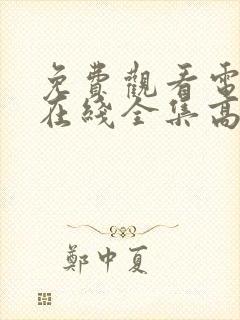 免費觀看電
在綫全集高
鄭中夏